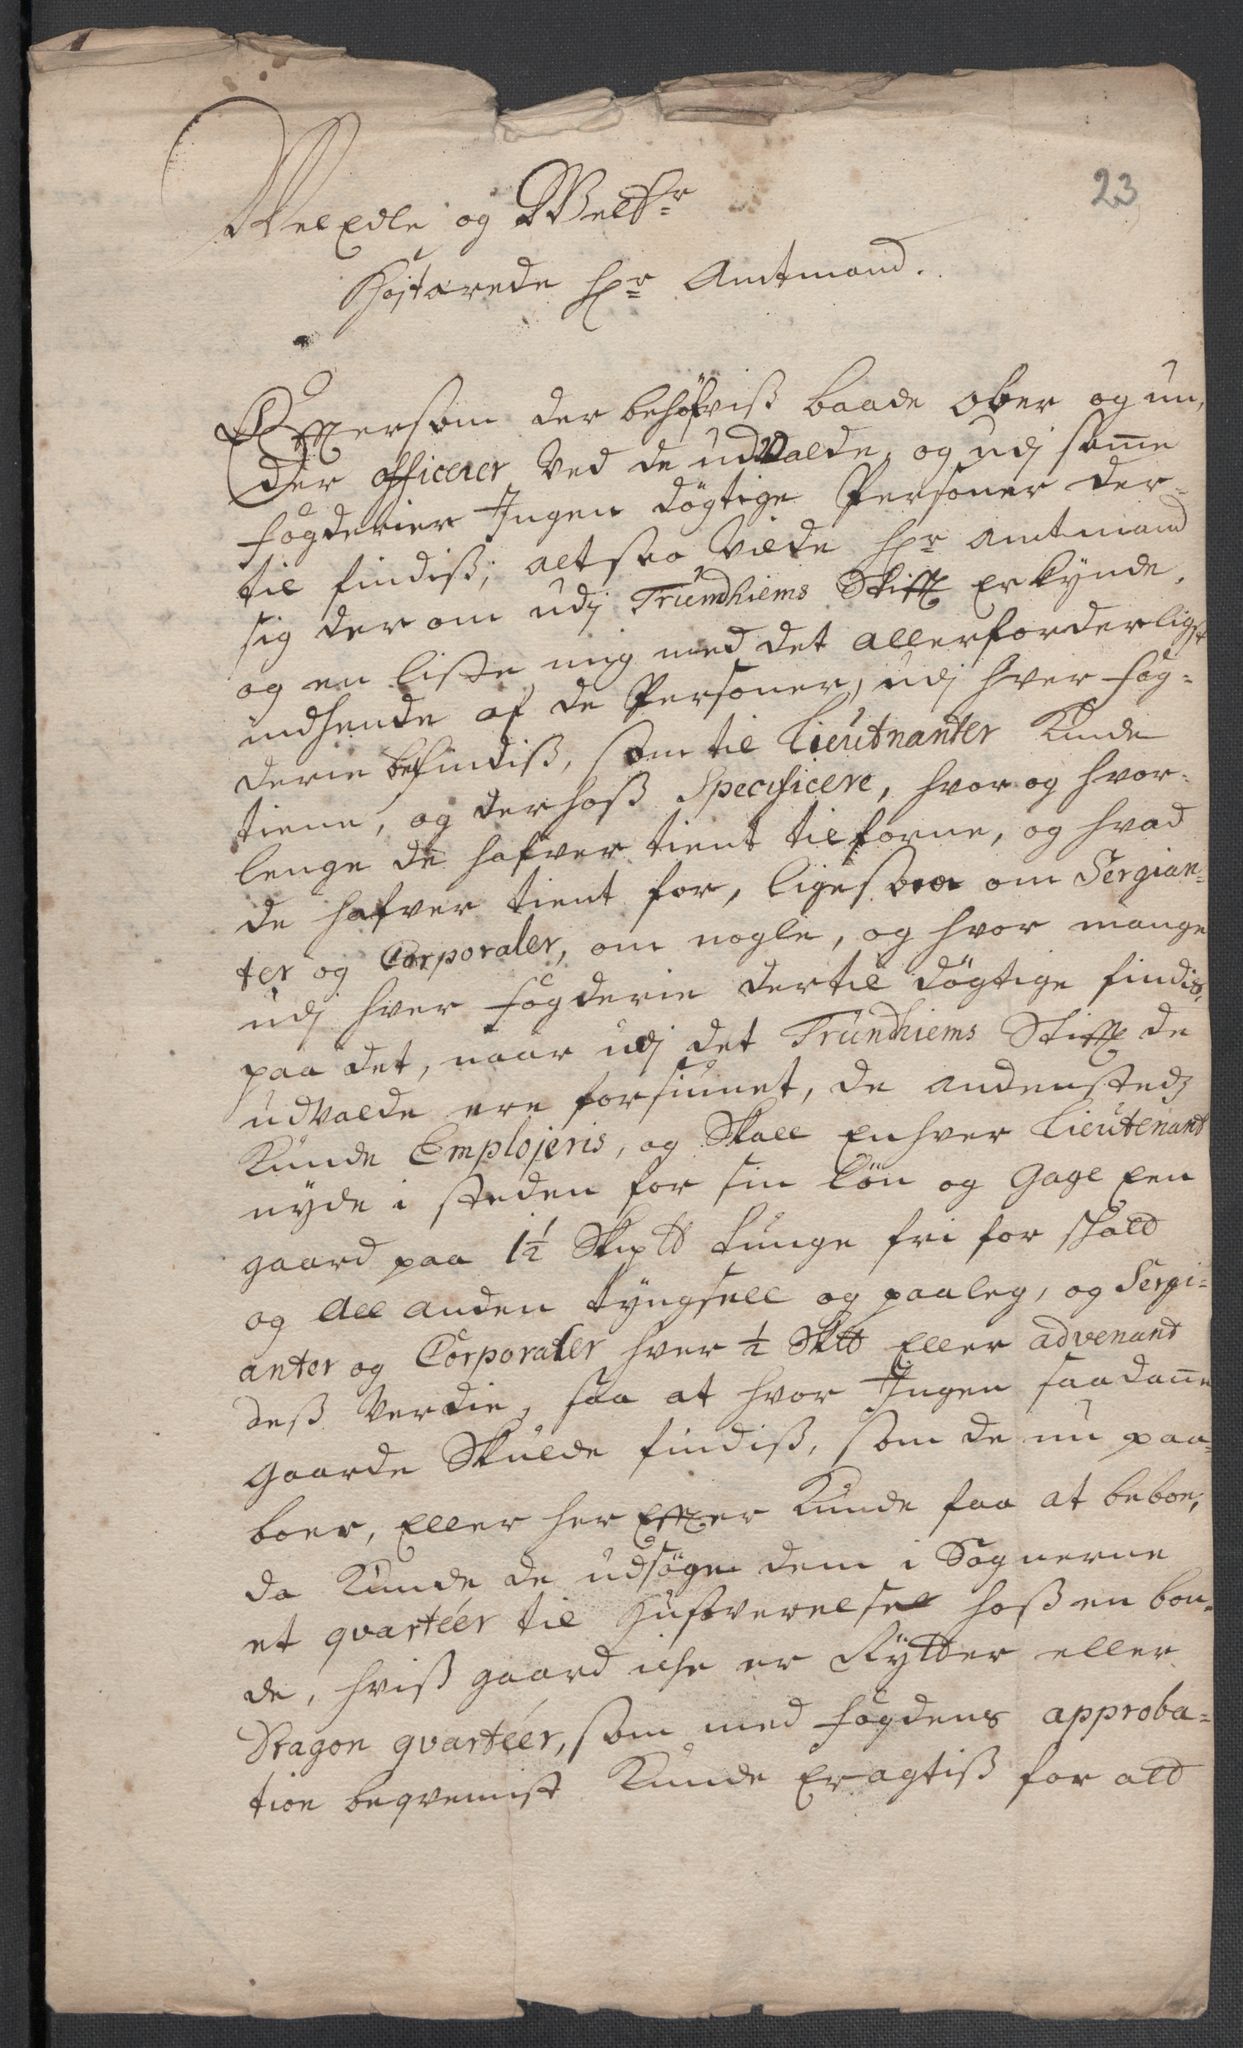 23
Wel Edle og Welbr
Højtærede Hr Amtmand.
Efftersom der behøfviß baade ober og un,
der officerer Ved de udvalde, og udj samme
fogderier Ingen døgtige Personer der-
til findiß, altsaa vilde Hr Amtmand
sig derom udj Trundhiems Stifft erkynde,
og en liste mig med det allerforderligst
indsende af de Personer, udj hver fog-
derie befindiß, som til Lieutnanter Kunde
tiene, og derhoß Specificere, hvor og hvor-
lenge de hafver tient tilforne, og hvad
de hafver tient for, ligesaa om Sergian-
ter og Corporaler, om nogle, og hvor mange
udj hver fogderie dertil døgtige findis,
paa det, naar udj det Trundhiems Stifft de
udvalde ere forsiunet, de andenstedz
Kunde Emplojeris, og Skall Enhver Lieutenant
nyde i steden for sin Løn og Gage Een
gaard paa 1½ Skip tt tunge fri for skatt
og All anden tyngsell og paaleg, og Sergi-
anter og Corporaler hver ½ Sk tt Eller advenant
deß Verdie, saa at hvor Ingen saadanne
gaarde Skulde findiß, som de nu paa-
boer, Eller her Effter Kunde faa at beboe,
da Kunde de udsøge dem i Sognerne
et qvarteer til Husverelse hoß en bon-
de, hviß gaard iche er Rytter eller
Dragon qvarteer, som med fogdens approba-
tion beqvemist Kunde Eragtiß for ald